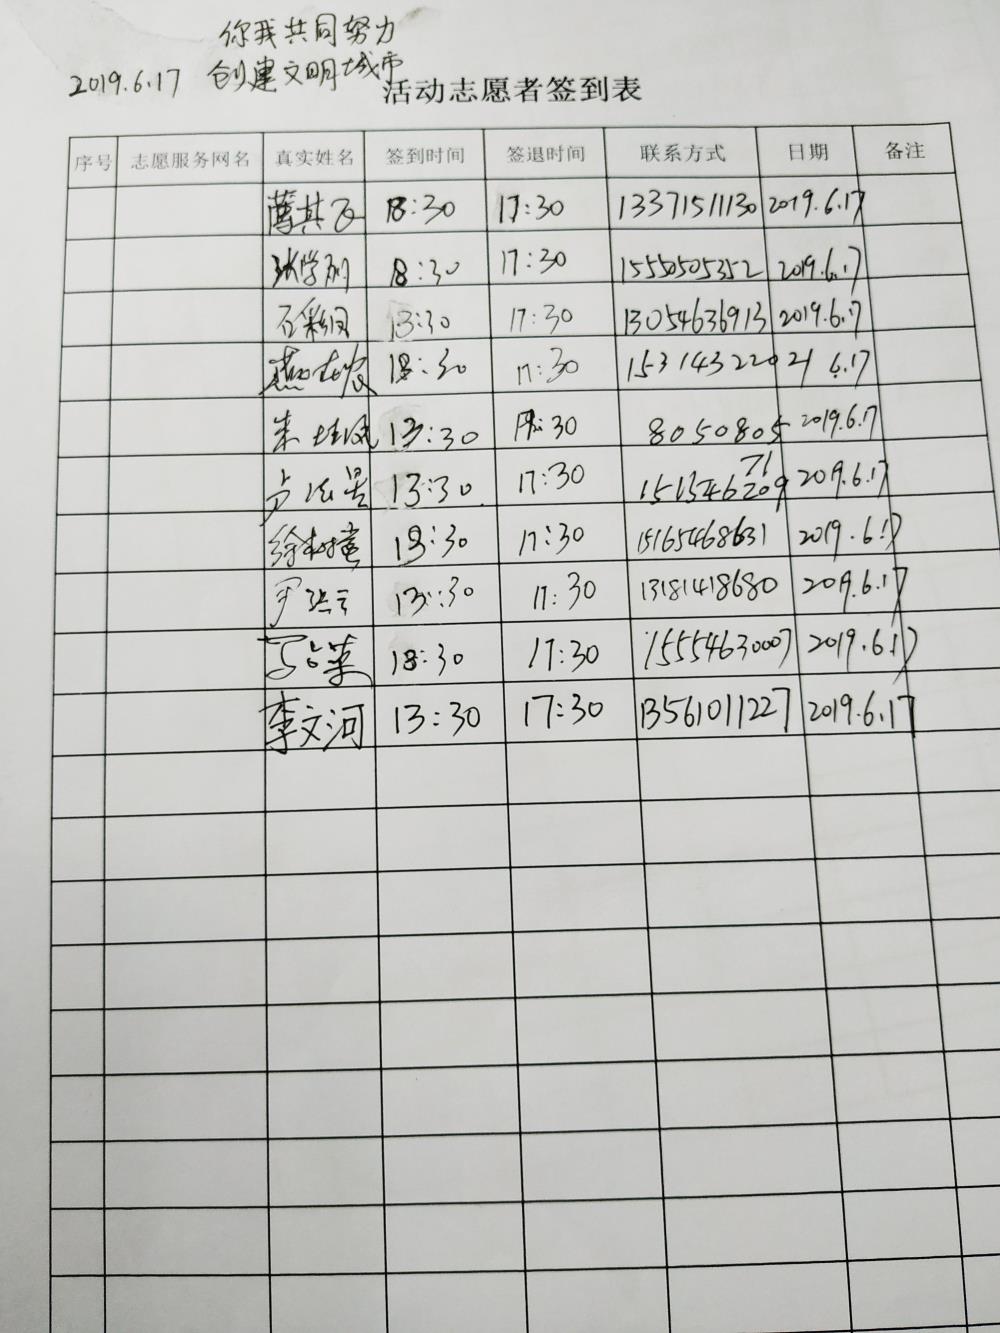 你我共同努力
2019.6.17 创建文明城市
活动志愿者签到表
序号 志愿服务网名 真实姓名 签到时间 签退时间 联系方式 日期 备注
13:30 17:30 13371511130 2019.6.17
13:30 17:30 15550505352 2019.6.17
13:30 17:30 13054636913 2019.6.17
13:30 17:30 15314322021 6.17
13:30 17:30 8050805 2019.6.17
13:30 17:30 2019.6.17
13:30 17:30 15165468631 2019.6.17
13:30 17:30 13181418680 2019.6.17
13:30 17:30 15554630007 2019.6.17
李文河 13:30 17:30 13561011227 2019.6.17